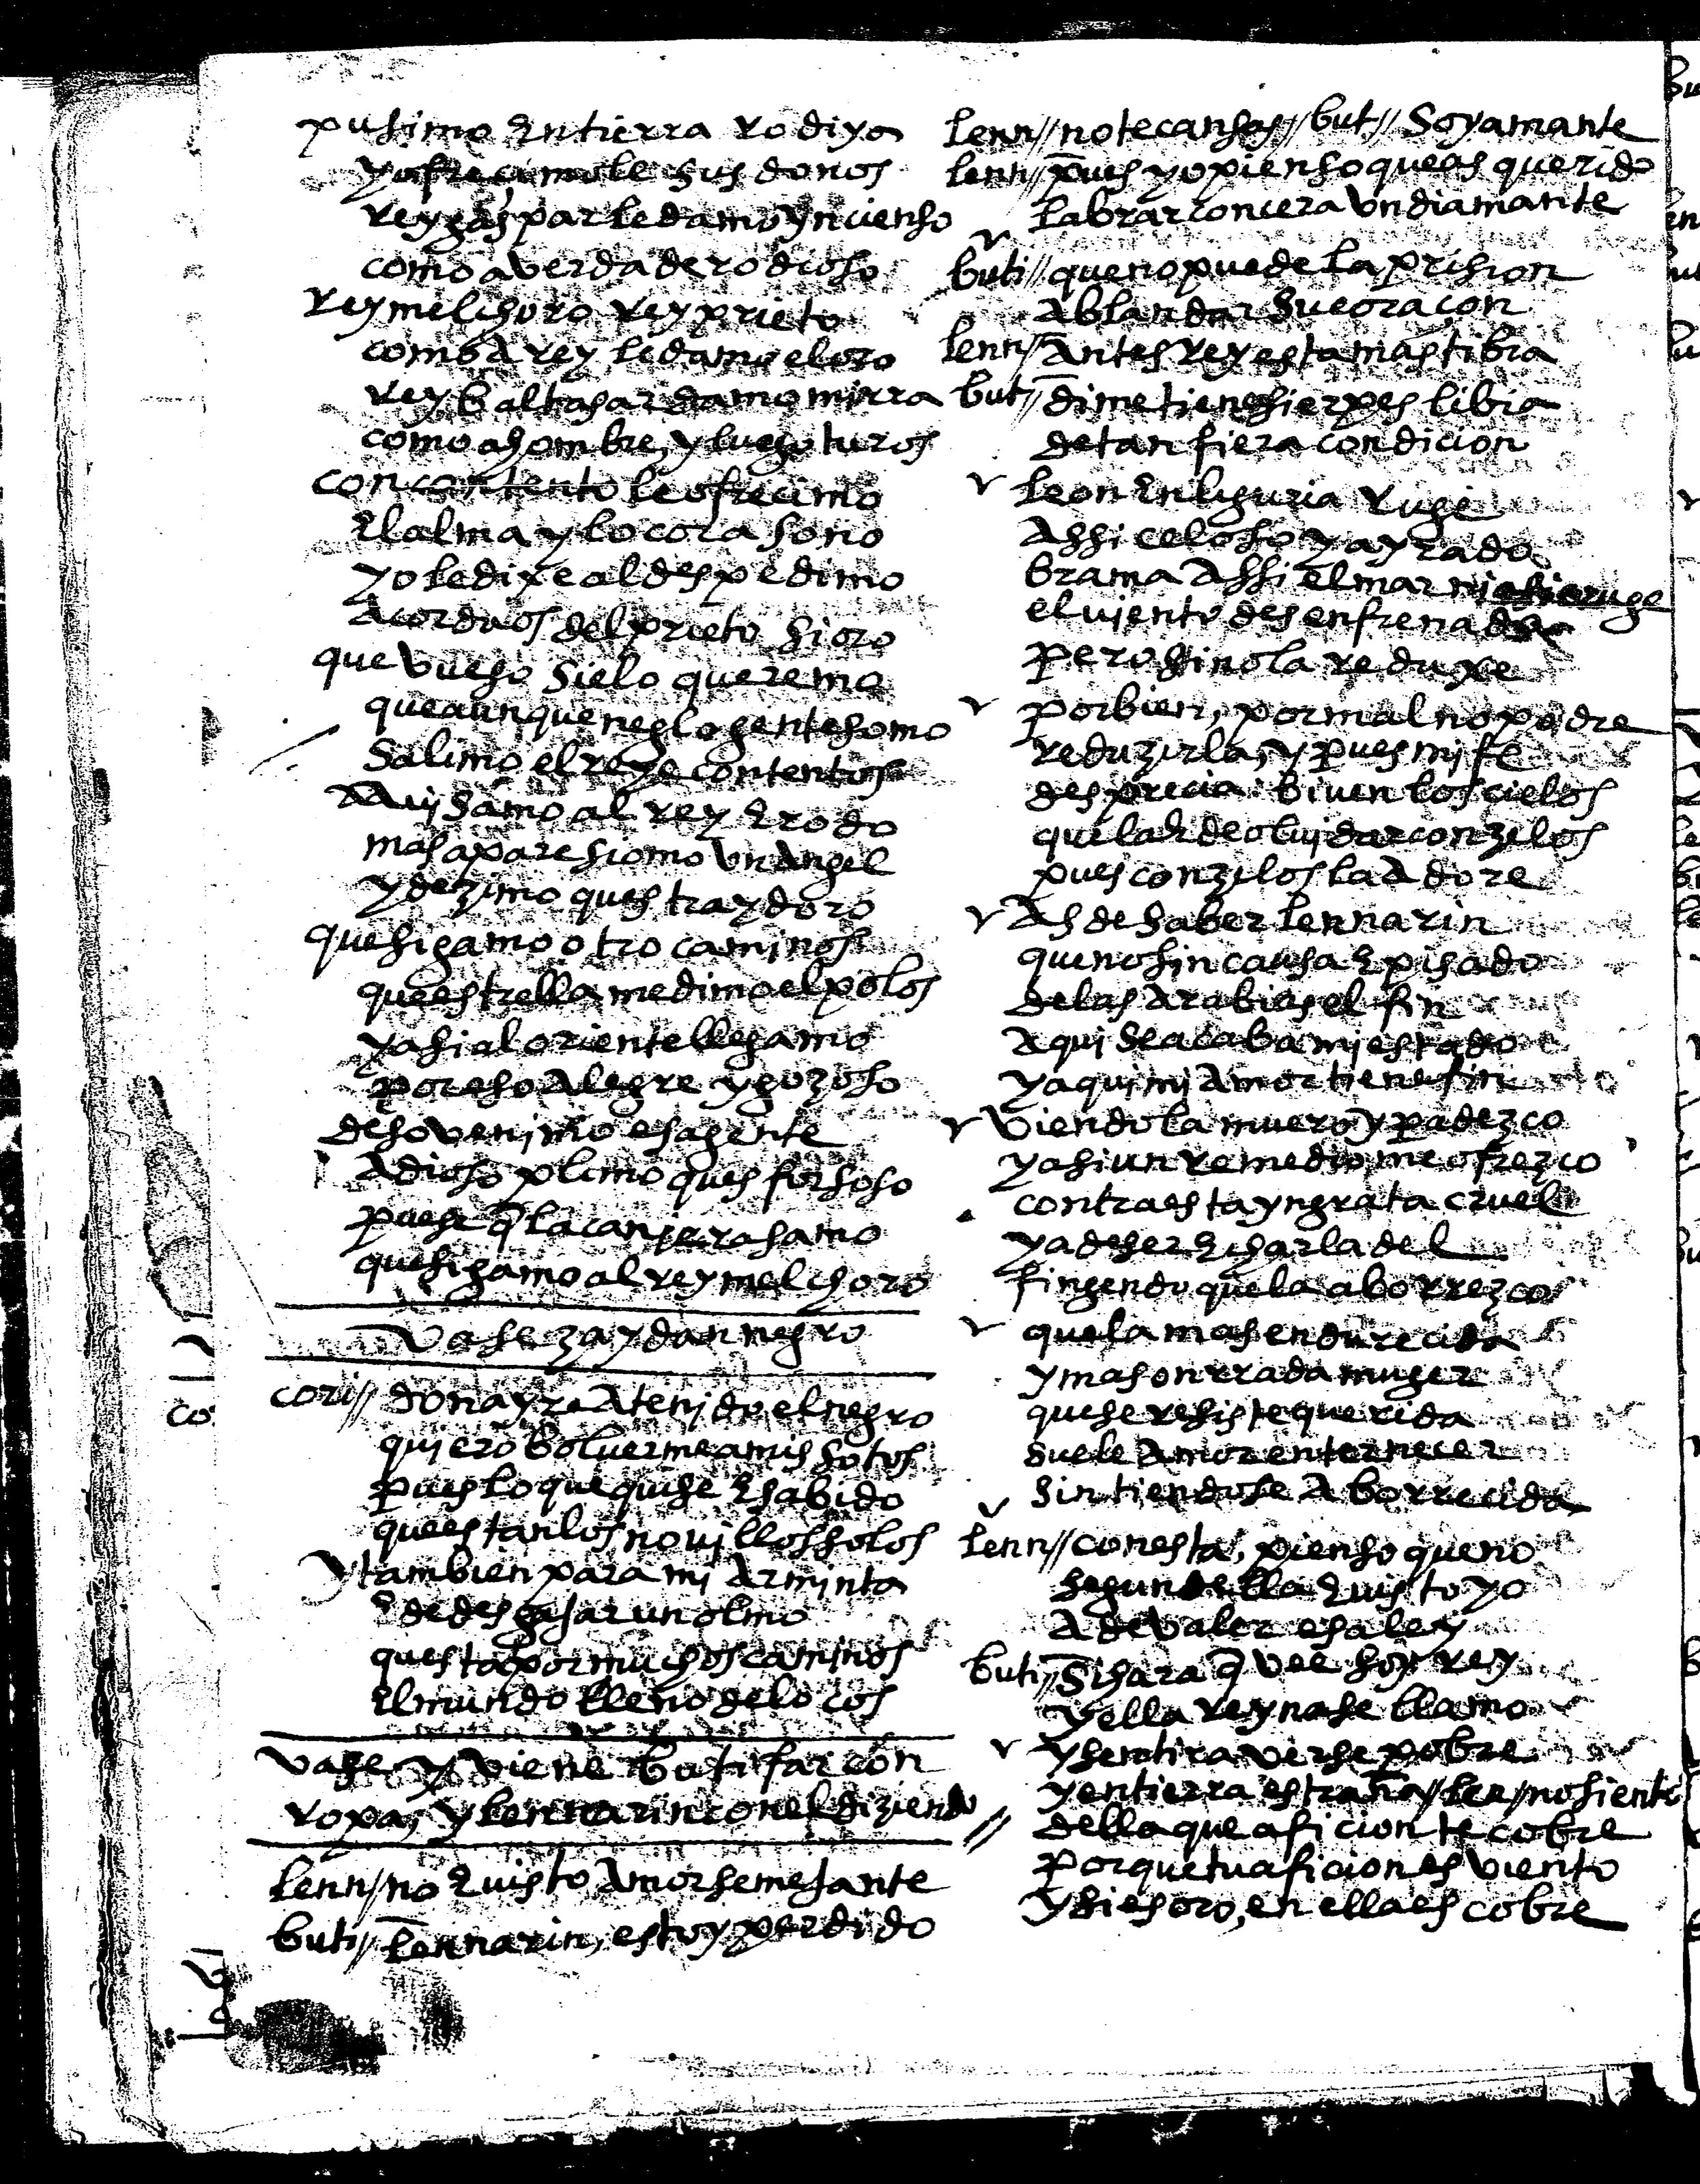 pusimo en tierra rodiyo
y ofrecimole sus donos
rey gaspar le damo yncienso
como a verdadero dioso
rey melchoro rey prieto
como a rey le damo el oro
rey baltasar damo mirra
como a hombre, y luego turos
con contento le ofrecimo
el alma y lo corasono
yo le dixe al despedimo
acordaos del prieto sioro
que vueso sielo queremo
que aunque neglo gente somo
salimo el reye contentos
avisamo al rey erodo
mas aparesiomo un angel
y dezimo ques traydoro
que sigamo otro caminos
que estrella medimo el polos
y asi al oriente llegamo
por eso alegre y gozoso
deso venimo esa gente
a dioso plimo ques forsoso
puese q̃ la canjerasamo
que sigamo al rey melchoro
vase zaydan negro
cori// donayre a tenido el negro
quiero bolverme a mis sotos
pues lo que quise e sabido
que estan los novillos solos
y tambien para mi arminta
e de desgajar un olmo
questa por muchos caminos
el mundo lleno de locos
vase y viene butifar con
ropas, y lennarin con el diziendo
lenn// no e visto amor semejante
buti// lennarin, estoy perdido
lenn// no te canses// but// soy amante
lenn// pues yo pienso que as querido
labrar con cera un diamante
buti// que no puede la prision
ablandar su coraçon
lenn// antes rey esta mas tibia
but// dime tiene sierpes libia
de tan fiera condicion
leon en liguria ruge
assi celoso y ayrado
brama assi el mar ni asi cruge
el viento desenfrenado
pero si no la reduxe
por bien, por mal no podre
reduzirla, y pues mi fe
desprecia: biven los cielos
que la e de olvidar con zelos
pues con zelos la adore
as de saber lennarin
que no sin causa e pisado
de las arabias el fin
aqui se acaba mi estado
y aqui mi amor tiene fin
viendola muero y padezco
y asi un remedio me ofrezco
contra esta yngrata cruel
y a de ser echarla del
fingendo que la aborrezco
que la mas endurecida
y mas onrrada muger
que se resiste querida
suele amor enternecer
sintiendose aborrecida
lenn// con esta, pienso que no
segun della e visto yo
a de valer esa ley
buti// si hara q̃ vee soy rey
y ella reyna se llamo
y sentira verse pobre
y en tierra estraña// len// no siente
della que aficion te cobre
porque tu aficion es viento
y si es oro, en ella es cobre